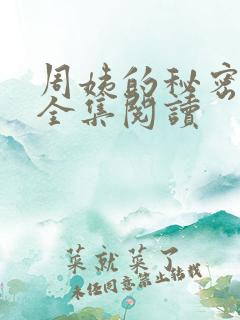 周姨的秘密
全集閱讀
菜就菜了
未经同意禁止转载